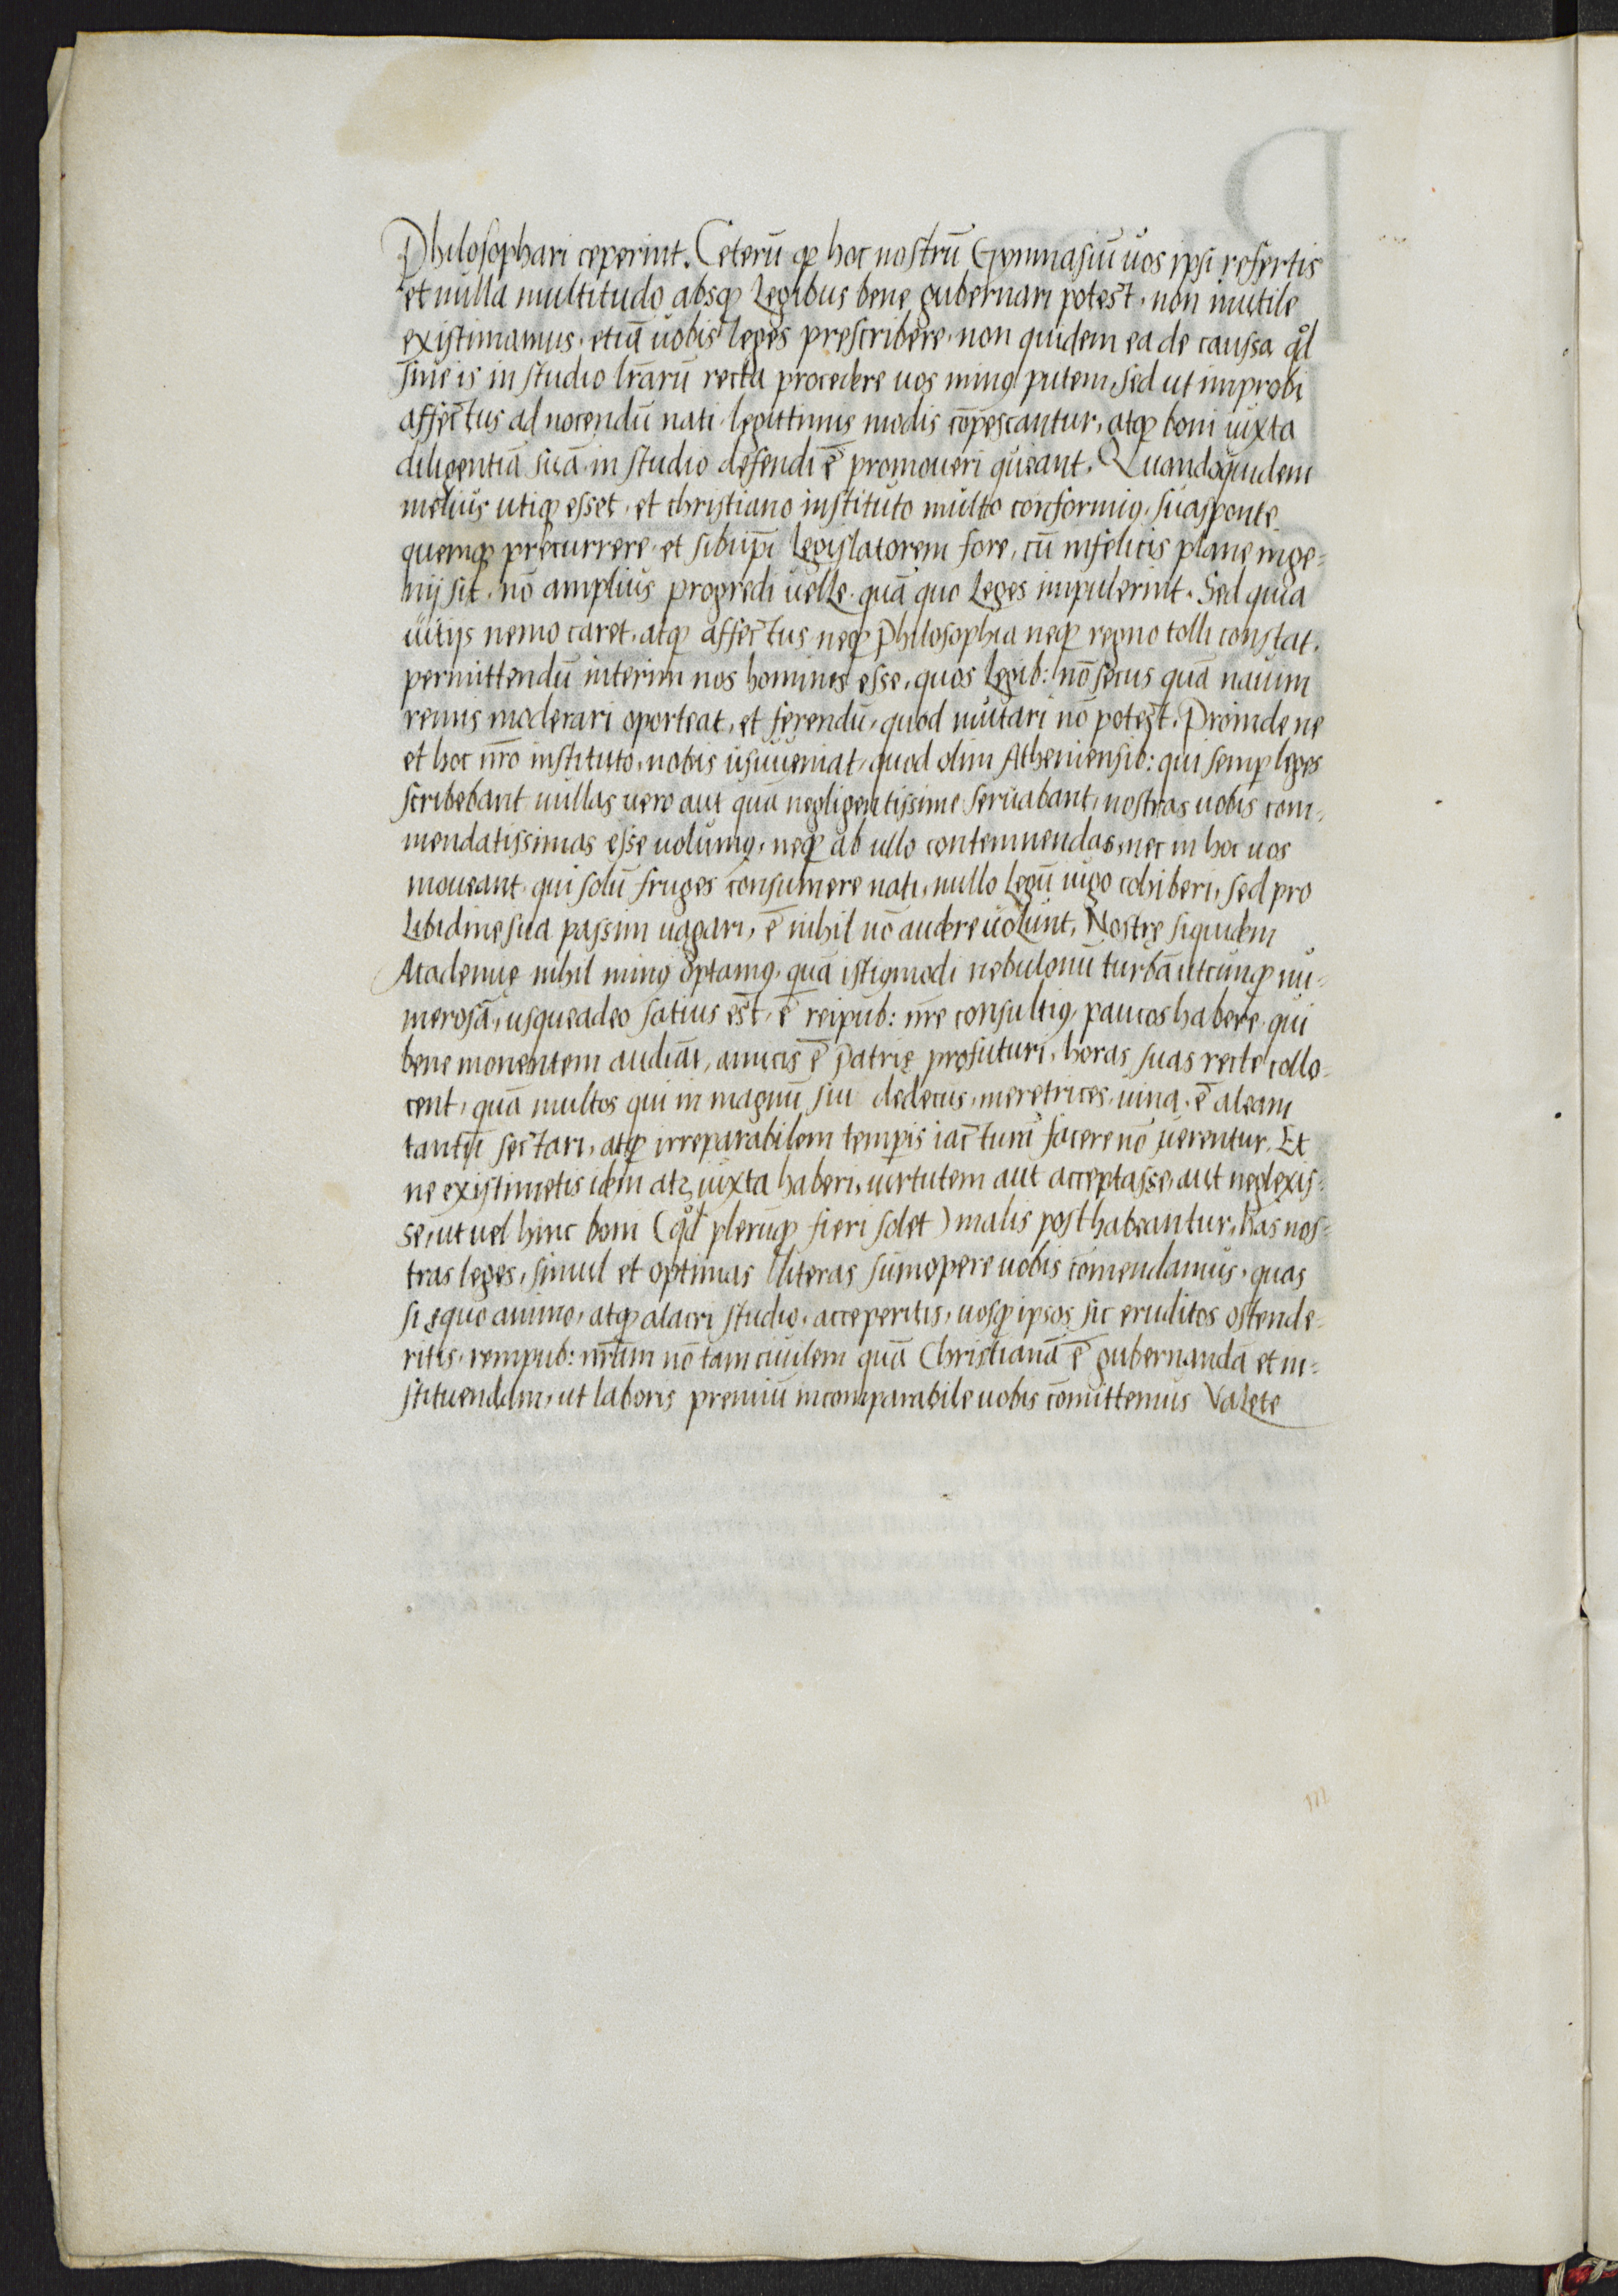 Philosophari ceperint. Ceterū ꝙ hoc nostrū Gymnasiū uos ipsi refertis
et nulla multitudo absqꝫ Legibus bene gubernari potest, non inutile
existimamus, etiā uobis leges prescribere, non quidem ea de caussa qd̊
sine is in studio lr̄arū recta procedere uos minꝰ putem, Sed ut improbi
affectus ad nocendū nati, legittimis modis cōpescantur, atqꝫ boni iuxta
diligentiā suā in studio defendi ē promoueri queant. Quandoquidem
melius utiqꝫ esset, et christiano instituto multo conformiꝰ, sua sponte
quemqꝫ precurrere, et sibiip̄i Legislatorem fore, cū infelicis plane inge=
nij sit, nō amplius progredi uelle, quā quo Leges impulerint. Sed quia
uitijs nemo caret, atqꝫ affectus neqꝫ Philosophia neqꝫ regno tolli constat,
permittendū interim nos homines esse, quos Legib: nō secus quā nauim
remis moderari oporteat, et ferendū, quod mutari nō potest. Proinde ne
et hoc nr̄o instituto, nobis usuueniat, quod olim Atheniensib: qui semp̱ leges
scribebant nullas uero aut quā negligentissime seruabant, nostras uobis com=
mendatissimas esse uolumꝰ, neqꝫ ab ullo contemnendas, nec in hoc uos
moueant, qui solū fruges consumere nati, nullo Legū iugo cohiberi, sed pro
Libidine sua passim uagari, ē nihil nō audere uolunt. Nostrę siquidem
Academie nihil minꝰ optamꝰ, quā istiꝰmodi nebulonū turbā utcunqꝫ nu=
merosā, usqueadeo satius est, ē reipub: nr̄e consultiꝰ, paucos habere, qui
bene monentem audiāt, amicis ē patrię profuturi, horas suas recte collo=
cent, quā multos qui in magnū sui dedecus, meretrices, uina, ē aleam
tantū sectari, atqꝫ irreparabilem temp̱is iacturā facere nō uerentur. Et
ne existimetis idem atqꝫ iuxta haberi, uirtutem aut acceptasse, aut neglexis=
se, ut uel hinc boni (qd̊ plerūqꝫ fieri solet) malis posthabeantur, has nos=
tras leges, simul et optimas literas sūmopere uobis cōmendamus, quas
si equo animo, atqꝫ alacri studio, acceperitis, uosqꝫ ipsos sic eruditos ostende=
ritis, rempub: nr̄am nō tam ciuilem quā Christianā ē gubernandā et in=
stituendam, ut laboris premiū incomparabile uobis cōmittemus Valete